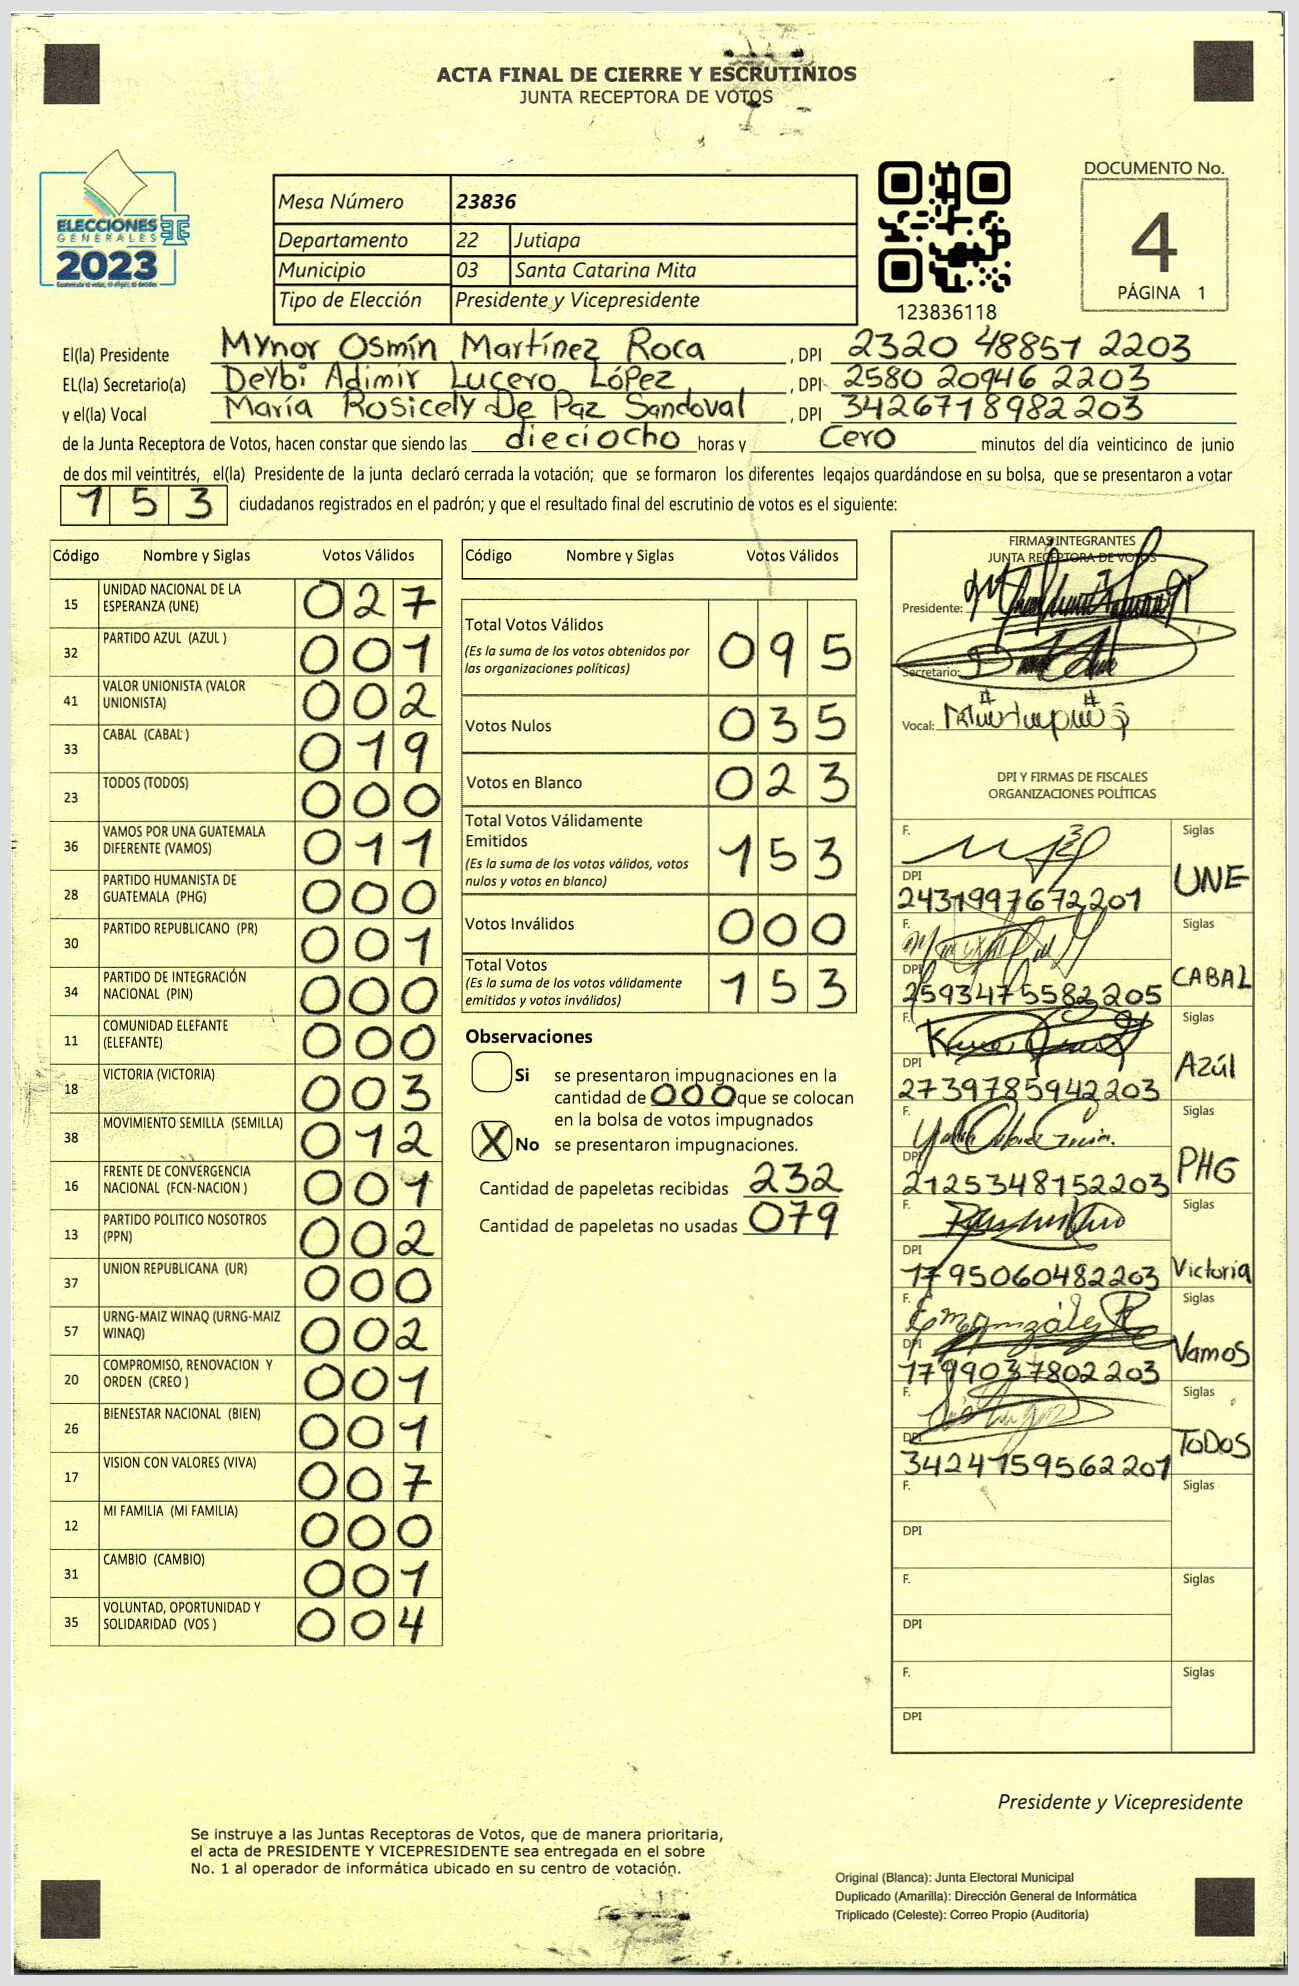 ACTA FINAL DE CIERRE Y ESCRUTINIOS
JUNTA RECEPTORA DE VOTOS
ELECCIONES
GENERALES
2023
Mesa Número 23836
Departamento 22 Jutiapa
Municipio 03 Santa Catarina Mita
Tipo de Elección Presidente y Vicepresidente
123836118
DOCUMENTO No.
4
PÁGINA 1
El(la) Presidente Mynor Osmín Martínez Roca , DPI 2320 48857 2203
EL(la) Secretario(a) Deybi Adimir Lucero López , DPI 2580 20946 2203
y el(la) Vocal María Rosicely De Paz Sandoval , DPI 3426718982203
de la Junta Receptora de Votos, hacen constar que siendo las dieciocho horas y Cero minutos del día veinticinco de junio
de dos mil veintitrés, el(la) Presidente de la junta declaró cerrada la votación; que se formaron los diferentes legajos guardándose en su bolsa, que se presentaron a votar
153 ciudadanos registrados en el padrón; y que el resultado final del escrutinio de votos es el siguiente:
Código Nombre y Siglas Votos Válidos
15 UNIDAD NACIONAL DE LA ESPERANZA (UNE) 027
32 PARTIDO AZUL (AZUL ) 001
41 VALOR UNIONISTA (VALOR UNIONISTA) 002
33 CABAL (CABAL ) 019
23 TODOS (TODOS) 000
36 VAMOS POR UNA GUATEMALA DIFERENTE (VAMOS) 011
28 PARTIDO HUMANISTA DE GUATEMALA (PHG) 000
30 PARTIDO REPUBLICANO (PR) 001
34 PARTIDO DE INTEGRACIÓN NACIONAL (PIN) 000
11 COMUNIDAD ELEFANTE (ELEFANTE) 000
18 VICTORIA (VICTORIA) 003
38 MOVIMIENTO SEMILLA (SEMILLA) 012
16 FRENTE DE CONVERGENCIA NACIONAL (FCN-NACION ) 001
13 PARTIDO POLITICO NOSOTROS (PPN) 002
37 UNION REPUBLICANA (UR) 000
57 URNG-MAIZ WINAQ (URNG-MAIZ WINAQ) 002
20 COMPROMISO, RENOVACION Y ORDEN (CREO ) 001
26 BIENESTAR NACIONAL (BIEN) 001
17 VISION CON VALORES (VIVA) 007
12 MI FAMILIA (MI FAMILIA) 000
31 CAMBIO (CAMBIO) 001
35 VOLUNTAD, OPORTUNIDAD Y SOLIDARIDAD (VOS ) 004
Código Nombre y Siglas Votos Válidos
Total Votos Válidos 095
(Es la suma de los votos obtenidos por
las organizaciones políticas)
Votos Nulos 035
Votos en Blanco 023
Total Votos Válidamente
Emitidos 153
(Es la suma de los votos válidos, votos
nulos y votos en blanco)
Votos Inválidos 000
Total Votos 153
(Es la suma de los votos válidamente
emitidos y votos inválidos)
Observaciones
Si se presentaron impugnaciones en la
cantidad de 000 que se colocan
en la bolsa de votos impugnados
X No se presentaron impugnaciones.
Cantidad de papeletas recibidas 232
Cantidad de papeletas no usadas 079
FIRMAS INTEGRANTES
JUNTA RECEPTORA DE VOTOS
Presidente:
Secretario:
Vocal:
DPI Y FIRMAS DE FISCALES
ORGANIZACIONES POLÍTICAS
F. Siglas
DPI 2431997672201 UNE
F. Siglas
DPI 2593475582205 CABAL
F. Siglas
DPI 2739785942203 Azúl
F. Siglas
DPI 2125348152203 PHG
F. Siglas
DPI 1795060482203 Victoria
F. Siglas
DPI 1799037802203 Vamos
F. Siglas
DPI 3424759562201 TODOS
F. Siglas
DPI
F. Siglas
DPI
F. Siglas
DPI
Presidente y Vicepresidente
Se instruye a las Juntas Receptoras de Votos, que de manera prioritaria,
el acta de PRESIDENTE Y VICEPRESIDENTE sea entregada en el sobre
No. 1 al operador de informática ubicado en su centro de votación.
Original (Blanca): Junta Electoral Municipal
Duplicado (Amarilla): Dirección General de Informática
Triplicado (Celeste): Correo Propio (Auditoría)